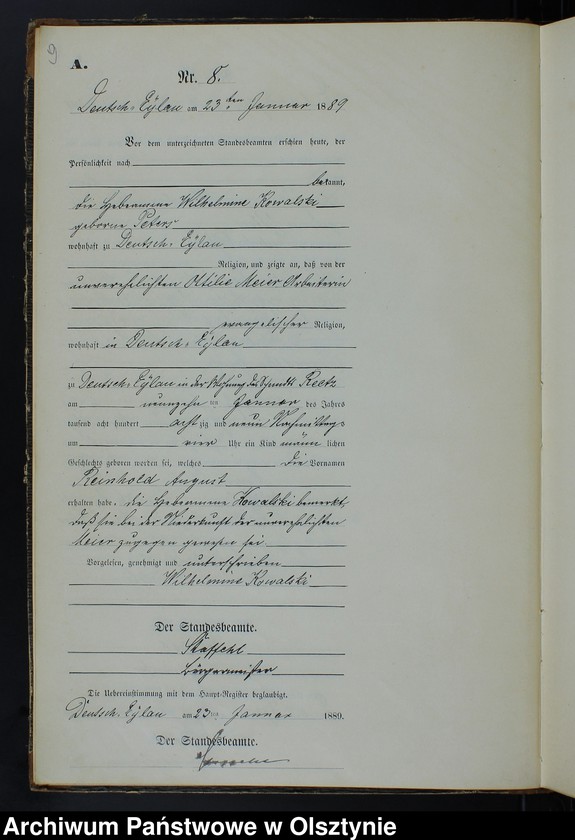 9
A.
Nr. 8.
Deutsch-Eylau am 23ten Januar 1889
Vor dem unterzeichneten Standesbeamten erschien heute, der
Persönlichkeit nach
bekannt,
die Hebeamme Wilhelmine Kowalski
geborne Peters
wohnhaft zu Deutsch-Eylau
Religion, und zeigte an, daß von der
unverehelichten Ottilie Meier Arbeiterin
evangelischer Religion,
wohnhaft in Deutsch-Eylau
zu Deutsch-Eylau in der Wohnung des Reetz
am neunzehn ten Januar des Jahres
tausend acht hundert acht zig und neun Nachmittags
um vier Uhr ein Kind männ lichen
Geschlechts geboren worden sei, welches die Vornamen
Reinhold August
erhalten habe. die Hebeamme Kowalski bemerkt,
daß sie bei der Niederkunft der unverehelichten
Meier zugegen gewesen sei
Vorgelesen, genehmigt und unterschrieben
Wilhelmine Kowalski
Der Standesbeamte.
Staffehl
Bürgermeister
Die Uebereinstimmung mit dem Haupt-Register beglaubigt.
Deutsch-Eylau am 23ten Januar 1889.
Der Standesbeamte.
Archiwum Państwowe w Olsztynie